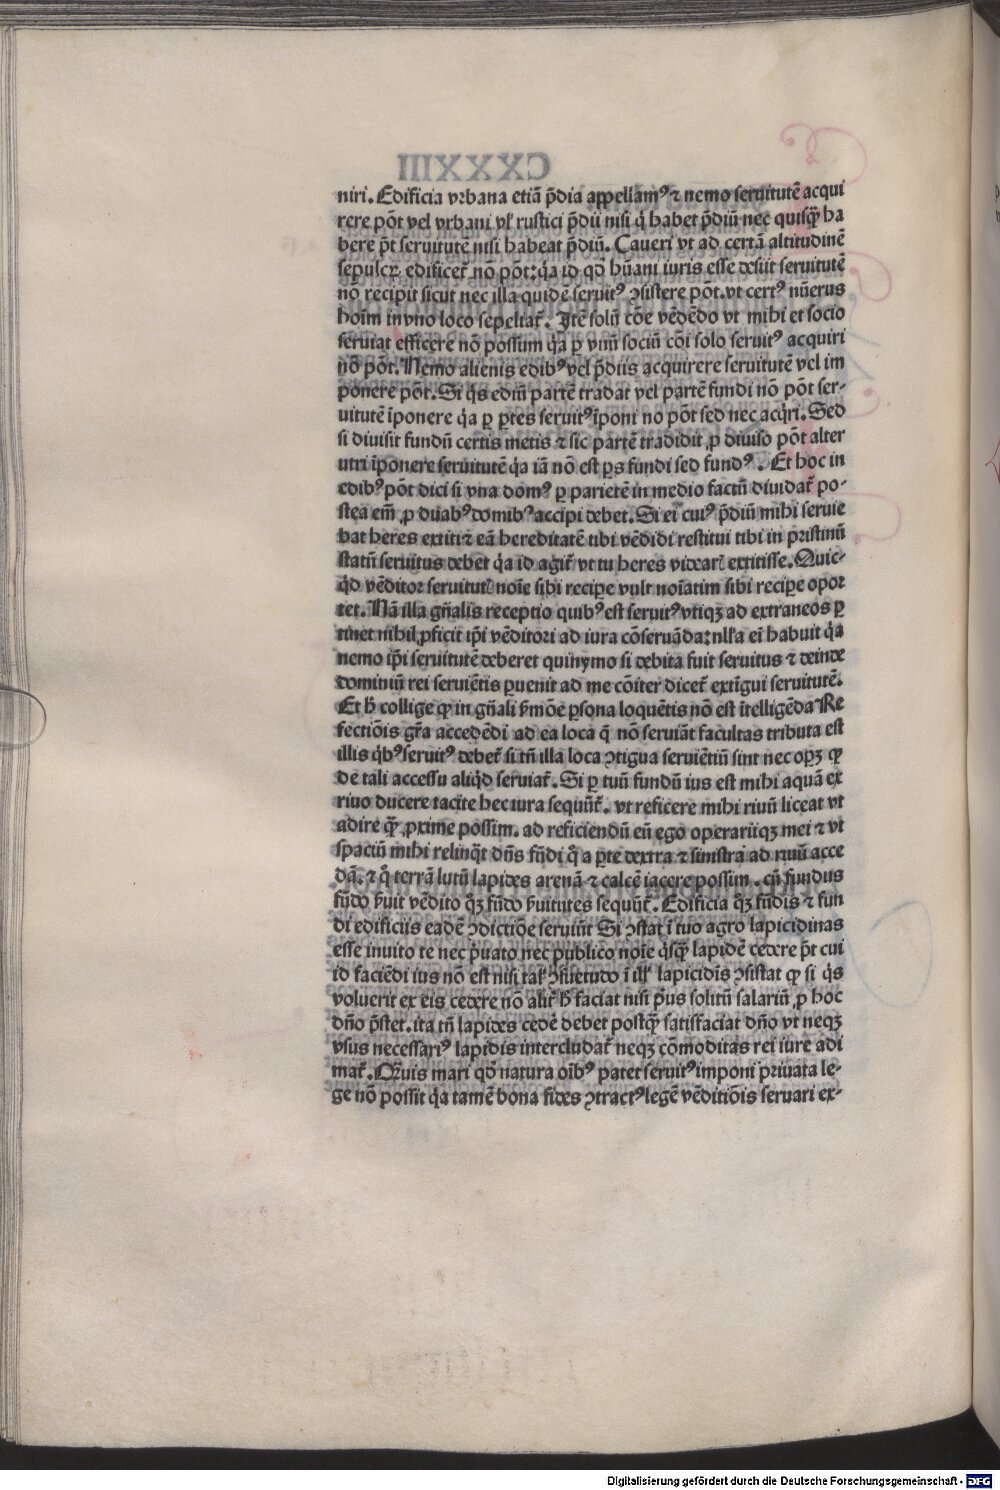 niri. Edificia vrbana etiã p̃dia appellamꝰ ⁊ nemo seruitutẽ acqui
rere põt vel vrbani vl' rustici p̃dii nisi q̃ habet p̃diũ nec quisq̃ ha
bere p̃t seruitutẽ nisi habeat p̃diũ. Caueri vt ad certã altitudinẽ
sepulcꝝ edificet̃ nõ põt: q̃a id qd̃ hũani iuris esse desiit seruitutẽ
nõ recipit sicut nec illa quidẽ seruitꝰ ɔsistere põt. vt certꝰ nũerus
hoĩm in vno loco sepeliat̃. Itẽ solũ cõe vẽdẽdo vt mihi et socio
seruiat efficere nõ possum q̃a p̱ vnũ sociũ cõi solo seruitꝰ acquiri
nõ põt. Nemo alienis edibꝰ vel p̃diis acquirere seruitutẽ vel im
ponere põt. Si q̃s ediũ partẽ tradat vel partẽ fundi nõ põt ser-
uitutẽ ĩponere q̃a p̱ p̱tes seruitꝰ ĩponi nõ põt sed nec acq̃ri. Sed
si diuisit fundũ certis metis ⁊ sic partẽ tradidit ꝓ diuiso põt alter
utri ĩponere seruitutẽ q̃a iã nõ est p̱s fundi sed fundꝰ. Et hoc in
edibꝰ põt dici si vna domꝰ p̱ parietẽ in medio factũ diuidat̃ po-
stea em̃ ꝓ duabꝰ domibꝰ accipi debet. Si ei cuiꝰ p̃diũ mihi seruie
bat heres extiti ⁊ eã hereditatẽ tibi vẽdidi restitui tibi in pristinũ
statũ seruitus debet q̃a id agit̃ vt tu heres videarꝭ extitisse. Quic-
q̃d vẽditor seruitutꝭ noĩe sibi recip̱e vult noĩatim sibi recip̱e opor
tet. Nã illa gñalis receptio quibꝰ est seruitꝰ vtiqꝫ ad extraneos p̱
tinet nihil ꝓficit ip̃i vẽditori ad iura cõseruãda: nll'a ei habuit q̃a
nemo ip̃i seruitutẽ deberet quinymo si debita fuit seruitus ⁊ deinde
dominiũ rei seruiẽtis p̱uenit ad me cõiter dicet̃ extĩgui seruitutẽ.
Et h̃ collige ꝙ in gñali ẜmõe p̱sona loquẽtis nõ est ĩtelligẽda Re
fectiõis gr̃a accedẽdi ad ea loca q̃ nõ seruiãt facultas tributa est
illis q̃bꝰ seruitꝰ debet̃ si tñ illa loca ɔtigua seruiẽtiũ sint nec opꝫ ꝙ
de tali accessu aliq̃d seruiat̃. Si p̱ tuũ fundũ ius est mihi aquã ex
riuo ducere tacite hec iura sequũt̃. vt reficere mihi riuũ liceat vt
adire q̃ ꝓxime possim. ad reficiendũ eũ ego operariiqꝫ mei ⁊ vt
spaciũ mihi relinq̃t dñs fũdi q̃ a p̱te dextra ⁊ sinistra ad riuũ acce
dã. ⁊ q̃ terrã lutũ lapides arenã ⁊ calcẽ iacere possim. cũ fundus
fũdo ẜuit vẽdito q̃ꝫ fũdo ẜuitutes sequũt̃. Edificia q̃ꝫ fũdis ⁊ fun
di edificiis eadẽ ɔdictiõe seruiũt Si ɔstat ĩ tuo agro lapicidinas
esse inuito te nec p̃uato nec publico noĩe q̃sq̃ lapidẽ cedere p̃t cui
id faciẽdi ius nõ est nisi talꝭ ɔsuetudo ĩ illꝭ lapicidĩs ɔsistat ꝙ si q̃s
voluerit ex eis cedere nõ alit̃ h̃ faciat nisi p̃us solitũ salariũ ꝓ hoc
dño p̃stet. ita tñ lapides cedẽ debet postq̃ satisfaciat dño vt neqꝫ
vsus necessariꝰ lapidis intercludat̃ neqꝫ cõmoditas rei iure adi
mat̃. Quis mari qd̃ natura oĩbꝰ patet seruitꝰ imponi priuata le-
ge nõ possit q̃a tamẽ bona fides ɔtractꝰ legẽ vẽditiõis seruari ex-
Digitalisierung gefördert durch die Deutsche Forschungsgemeinschaft - DFG